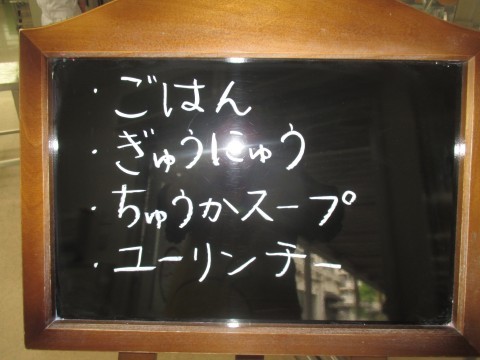 ・ごはん
・ぎゅうにゅう
・ちゅうかスープ
・ユーリンチー